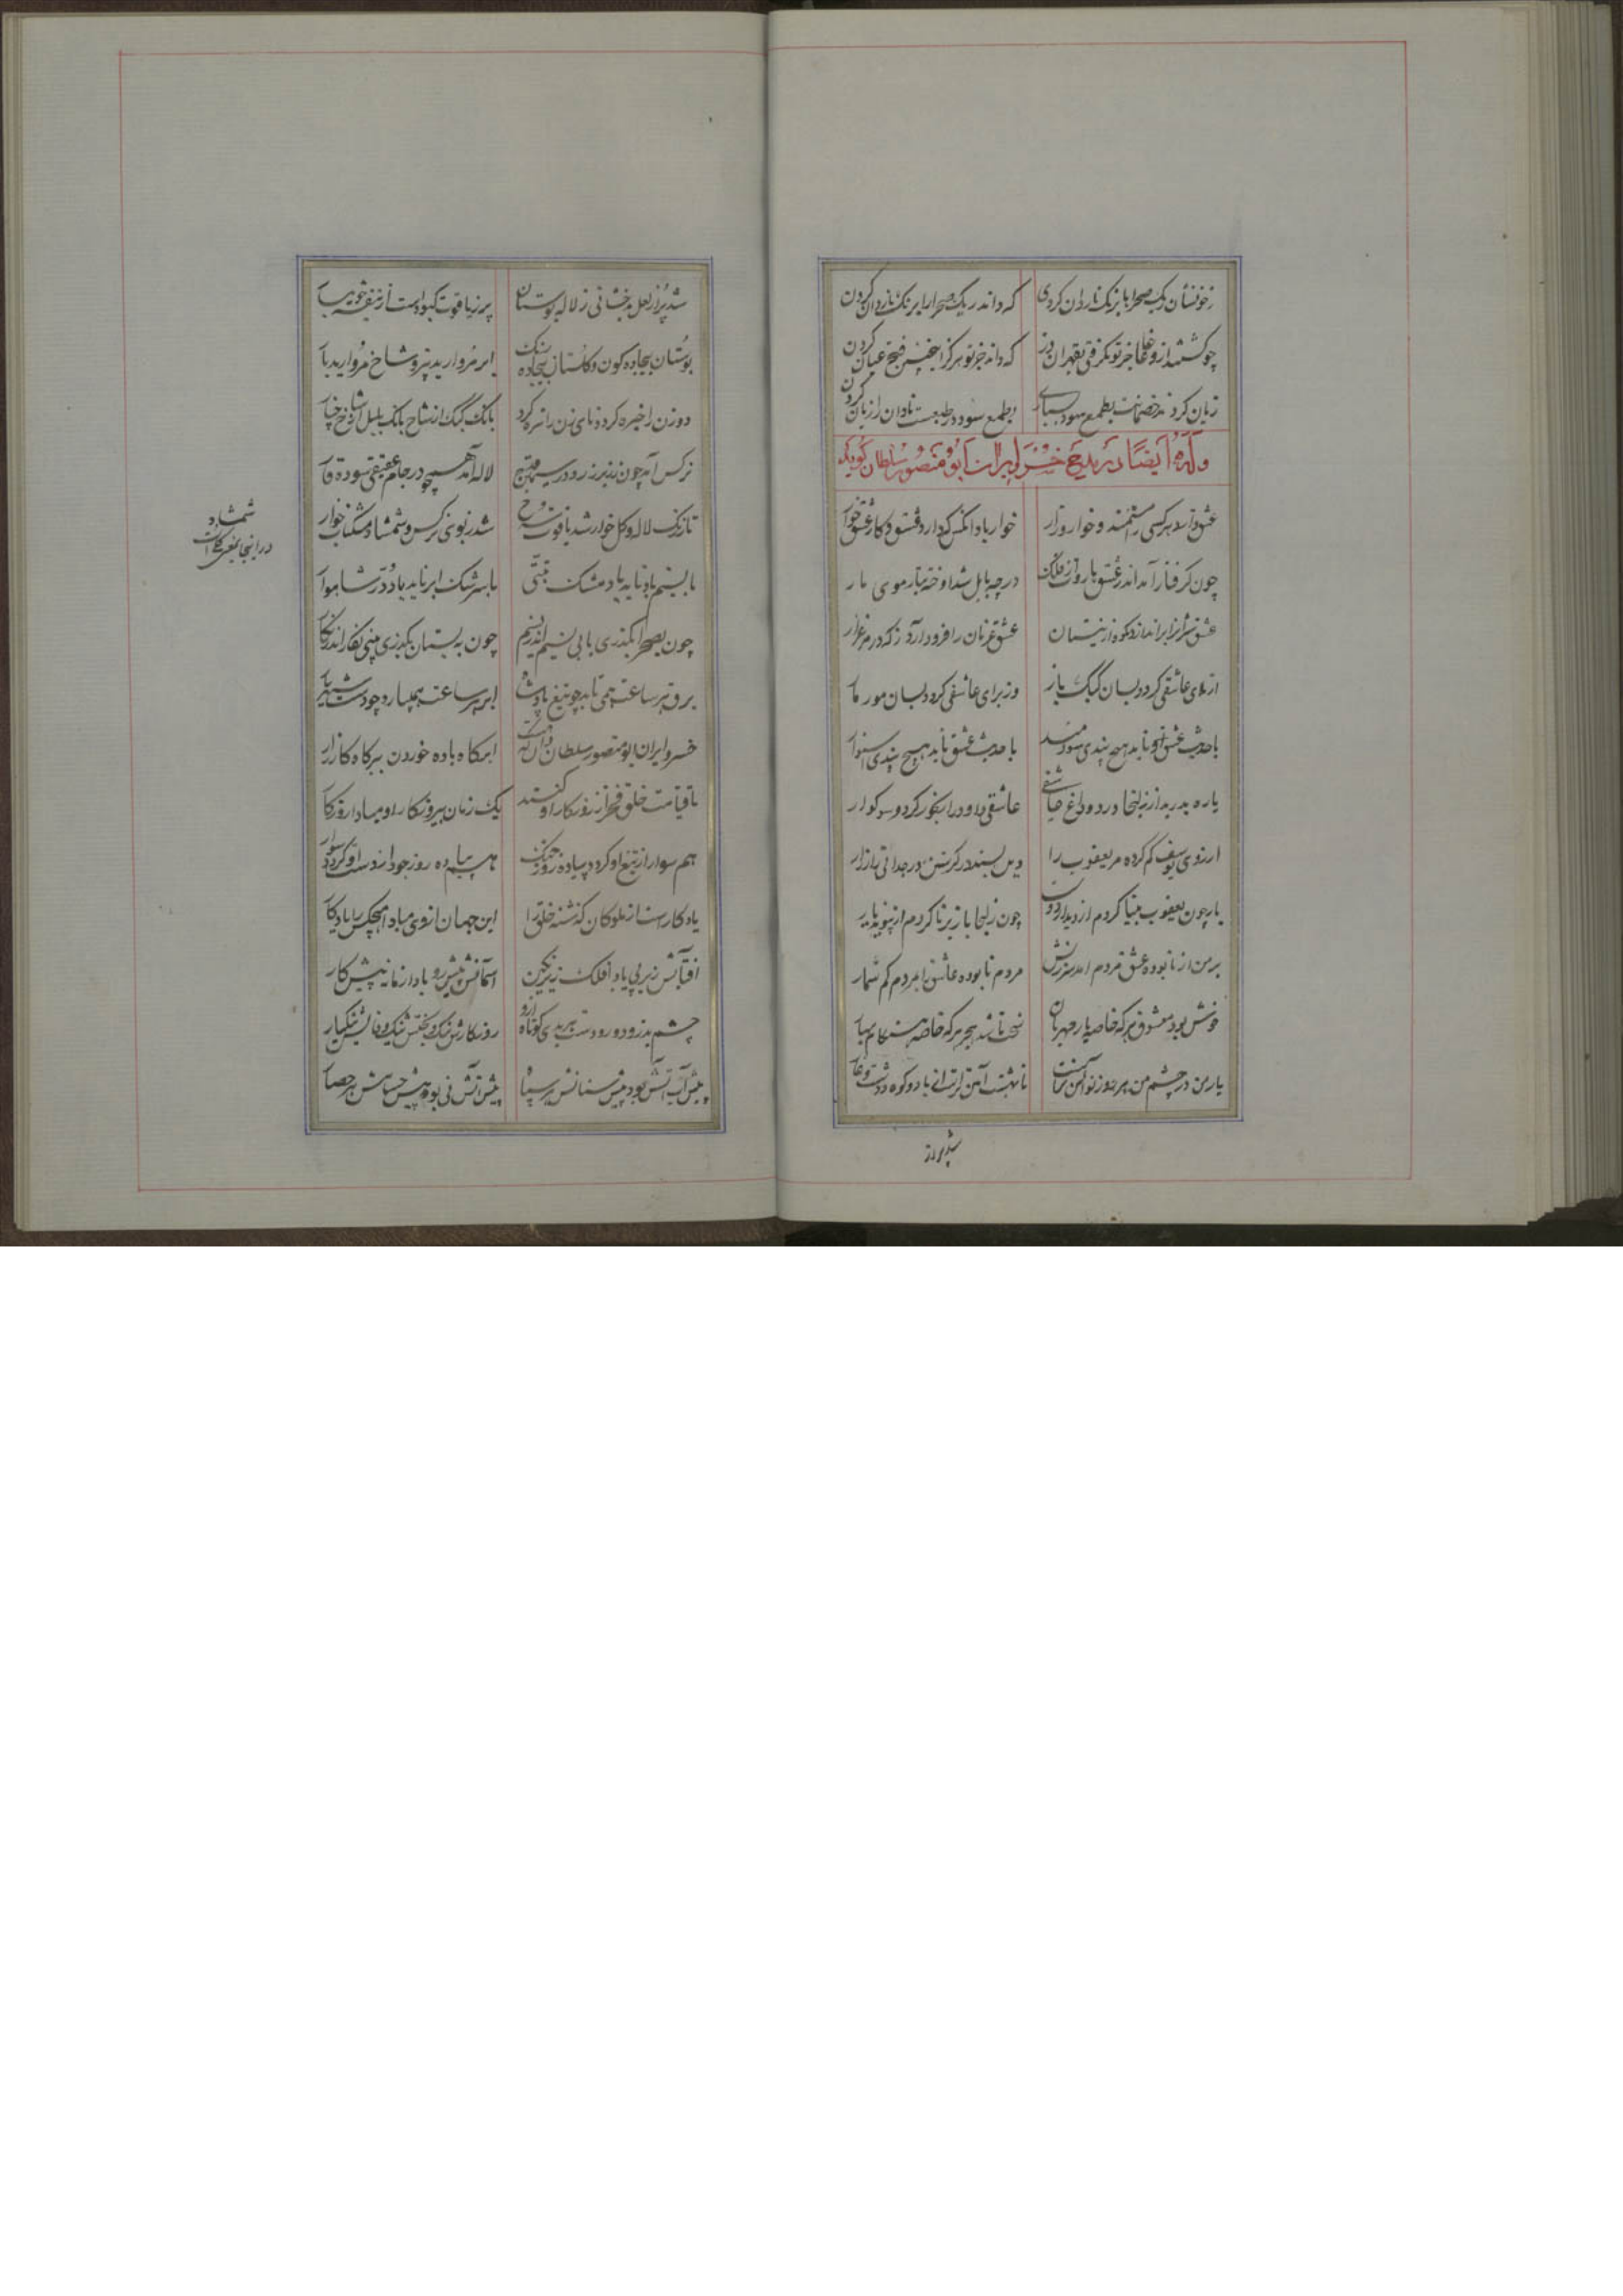 زخونشان ریک صحرا با برنک ناردان کردی
که داند ریک صحرا را برنک ناردان کردن
چو کشتند از وغا عاجز تو بگرفتی بقهران دز
که داند جز تو هرگز اینچنین فتح عیان کردن
زیان کردند خصمانت بطمع سود بسیاری
بطمع سود در طبعست نادان را زیان کردن
وله ایضا در مدیح خسرو ایران ابومنصور سلطان گوید
عشق دارد هر کسی را مستمند و خوار و زار
خوار باد آنکس که دارد عشق و کار عشق خوار
چون گرفتار آمد اندر عشق هاروت از فلک
در چه بابل شد اوخته بتار موی مار
عشق شیران را براندازد بکوه از نیستان
عشق غرمان را فرود آرد ز که در مرغزار
از بلای عاشقی گردد بسان کبک باز
وز برای عاشقی گردد بسان مور مار
با حدیث عشق تو ناید هیچ پندی سودمند
با حدیث عشق ناید هیچ پندی استوار
پاره بد بر بد از زلیخا درد و داغ عاشقی
عاشقی داود را رنجور کرد و سوکوار
آرزوی یوسف گم کرده مر یعقوب را
ویس بسند در گرستن در جدائی زار زار
باز چون یعقوب بینا گردم از دیدار دوست
چون زلیخا باز برنا گردم از پیوند یار
بر من از نابوده عشق مردم آمد سرزنش
مردم نابوده عاشق را مردم کم شمار
خوش بود معشوق هر که خاصه یار مهربان
سخت باشد هجر هر که خاصه هنگام بهار
یار من در چشم من هر روز نو آئین تر است
تا بهشت آئین تر است این باد و کوه و دشت و غار
شد پر از
شد پر از لعل بدخشانی ز لاله بوستان
پر ز یاقوت کبود است از بنفشه جویبار
بوستان بیجاده گون و گلستان بیجاده رنک
ابر مروارید بیز و شاخ مروارید بار
دو زن را خیره کرد و نای زن را تیره کرد
بانک کبک از شاخ بانک بلبل از شاخ چنار
نرگس آمد چون زبر زرد در سیمین قدح
لاله آمد همچو در جام عقیقی سوده قار
تا ز رنک لاله و گل خوار شد یاقوت سرخ
شد ز بوی نرگس و شمشاد مشک ناب خوار
با نسیم باد ناید یاد مشک تبتی
با سرشک ابر ناید یاد در شاهوار
چون بصحرا بگذری یابی نسیم اندر نسیم
چون به بستان بگذری بینی نگار اندر نگار
برق هر ساعت همی تابد چو تیغ پادشاه
ابر هر ساعت همی بارد چو دست شهریار
خسرو ایران ابومنصور سلطان آن که هست
ابر گاه باده خوردن ببر گاه کارزار
تا قیامت خلق فخر از روزگار او کنند
یک زمان بی روزگار او مبادا روزگار
هم سوار از تیغ او گردد پیاده روز جنک
هم پیاده روز جود از دست او گردد سوار
یادگار است از ملوکان گذشته خلق را
این جهان از وی مبادا هیچکس را یادگار
آفتابش زیر پی باد و فلک زیر نگین
آسمانش پیش رو باد و زمانه پیش کار
چشم بد زو دور و دست بد بدی کوتاه ازو
روزگارش نیک و بختش نیک و فالش نیک یار
پیش آب آتش بود پیش سنانش هر سپاه
پیش آتش نی بود پیش حسامش هر حصار
شمشاد
در اینجا